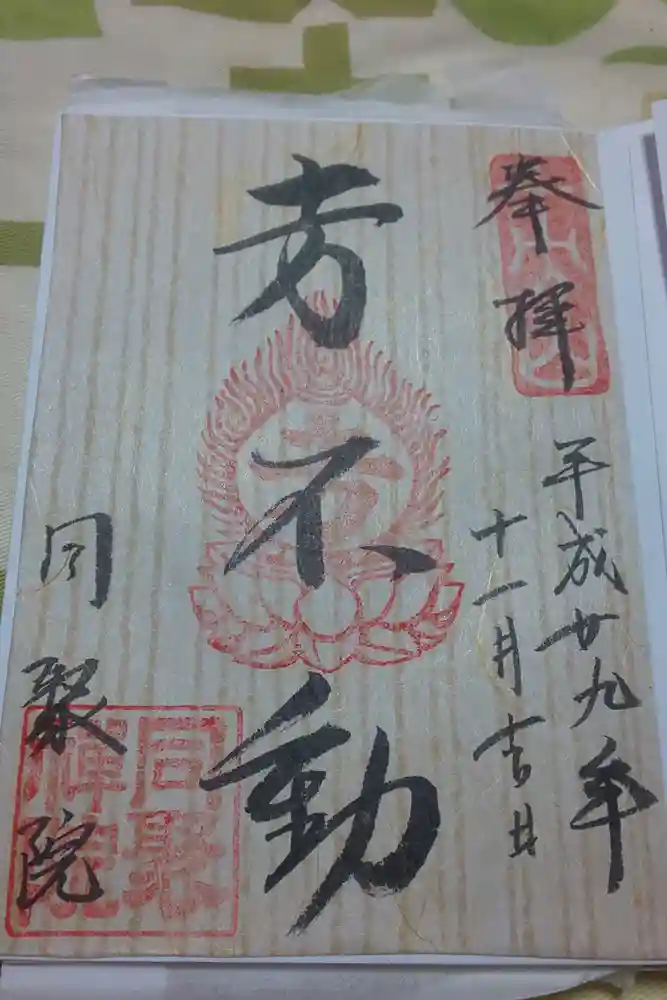 奉拝
平成廿九年
十一月吉日
芳不動
同聚院
同聚
院